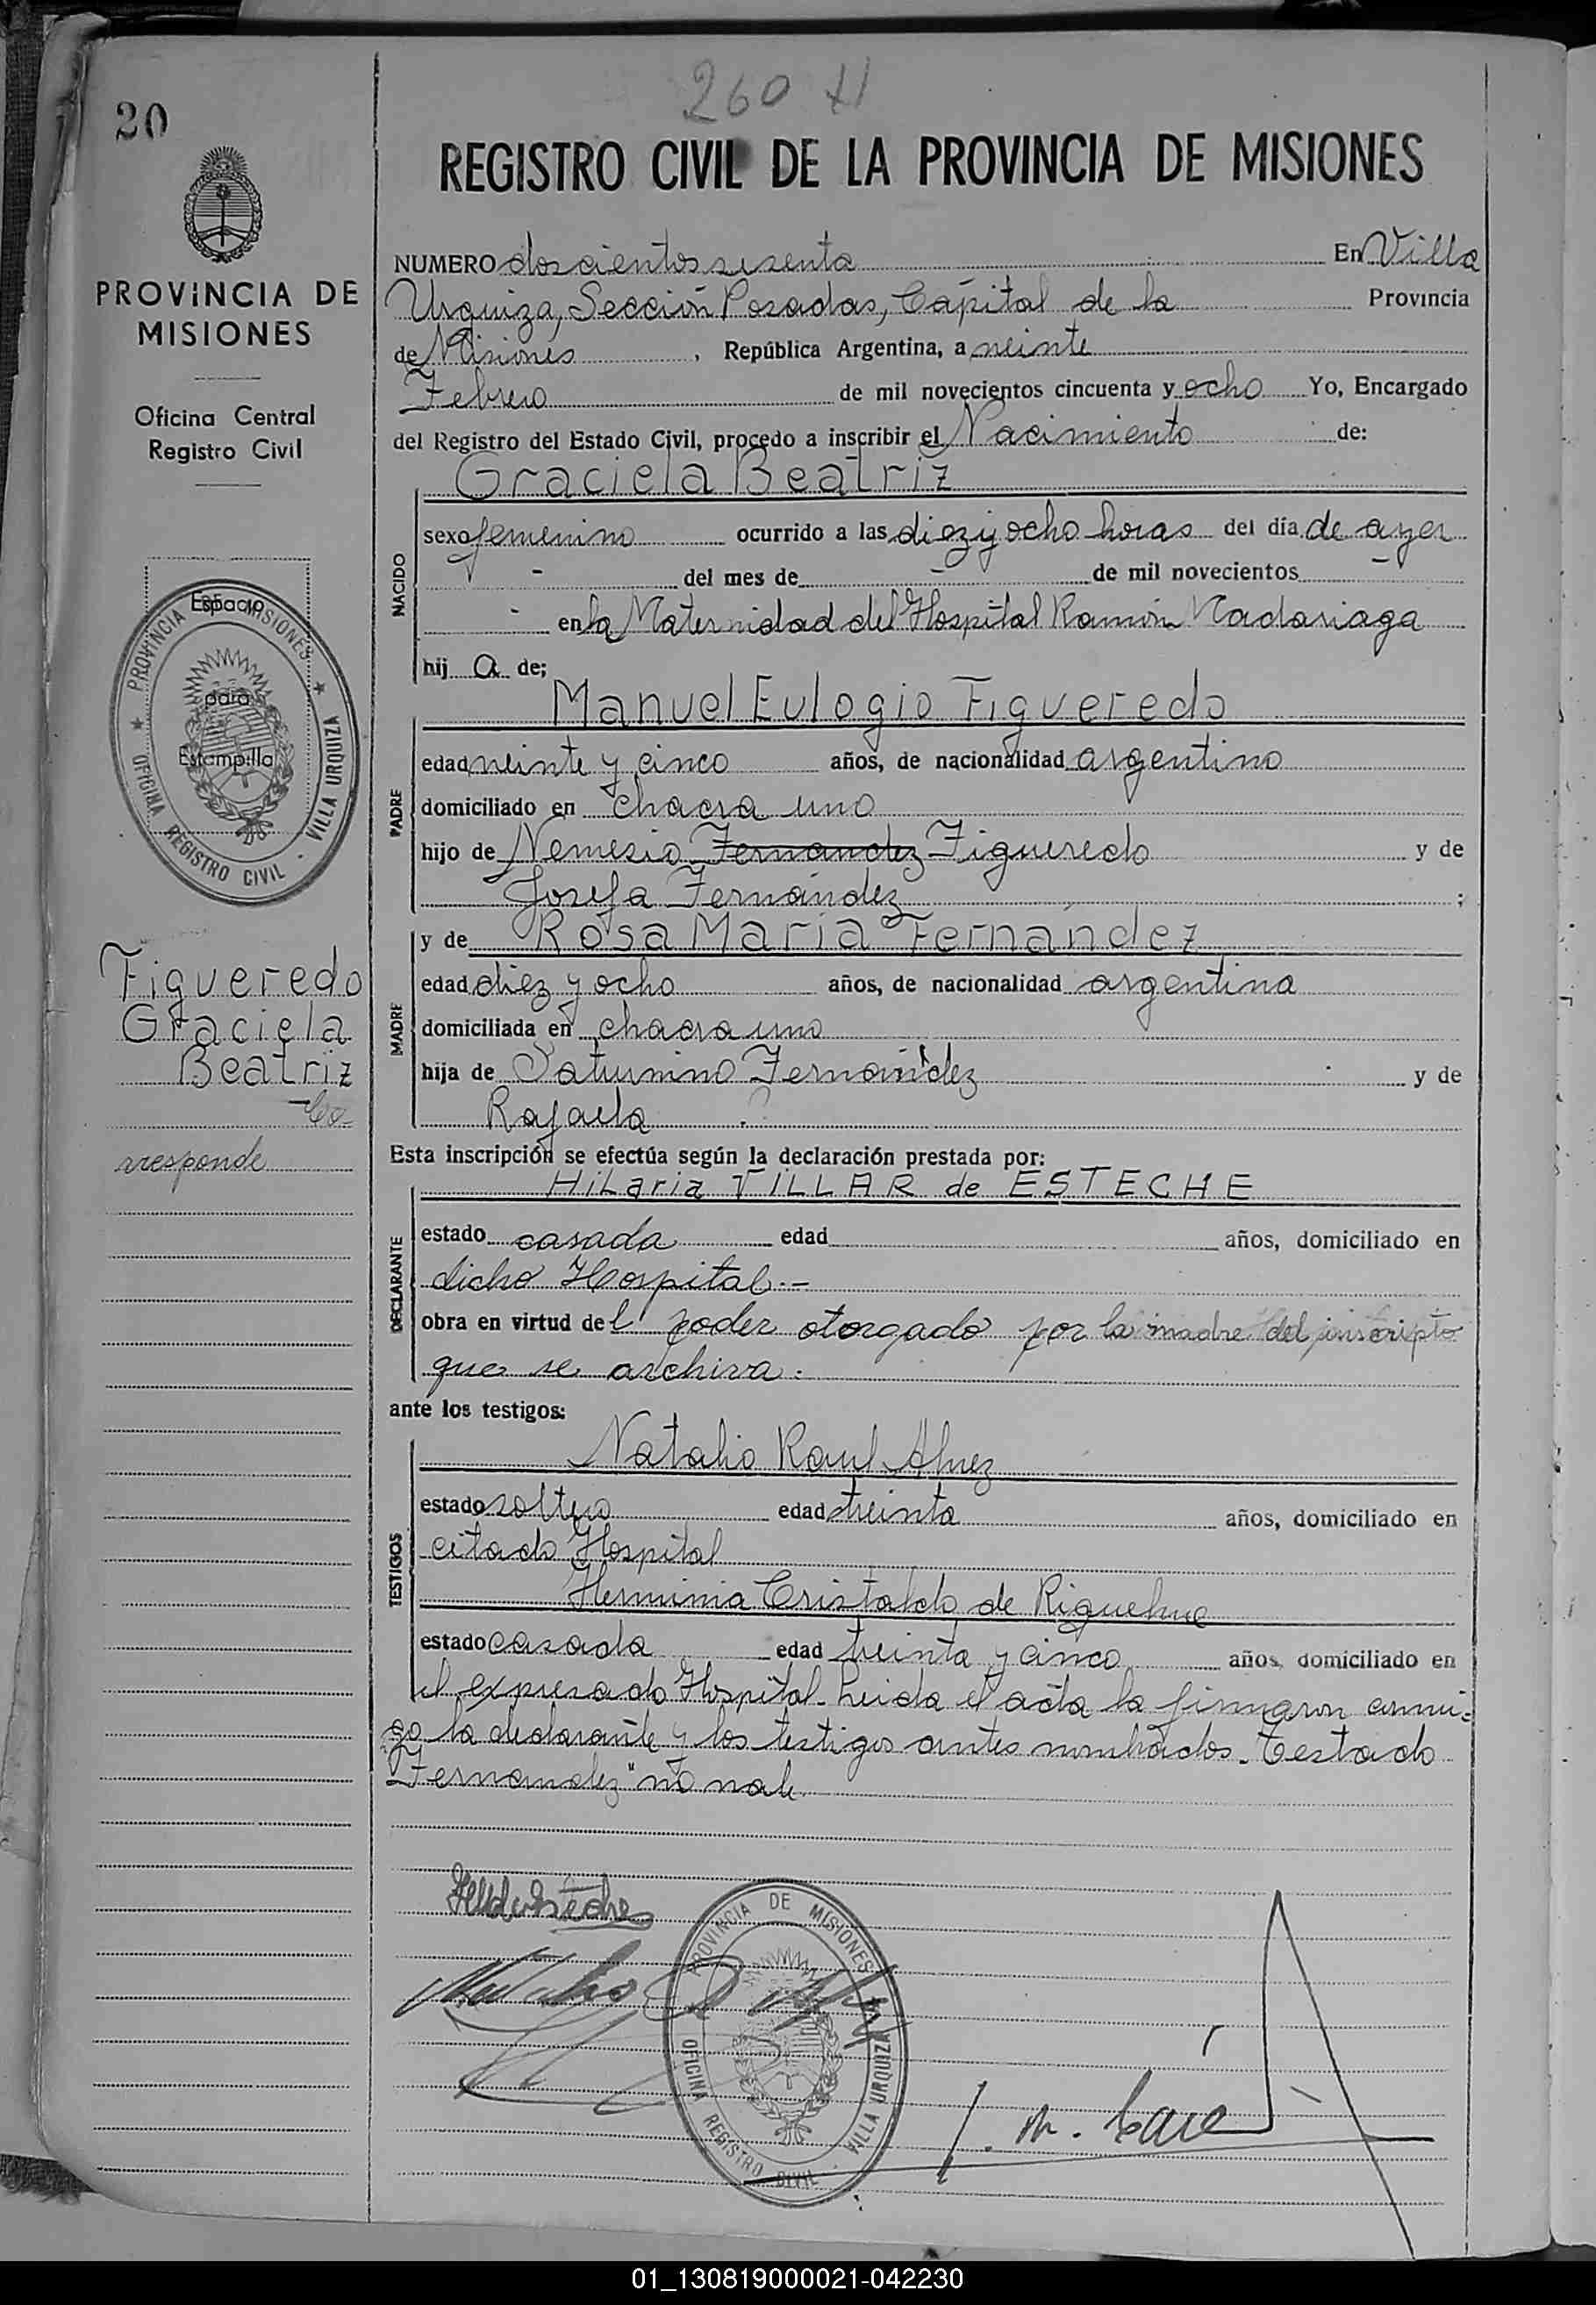 260 H
20
REGISTRO CIVIL DE LA PROVINCIA DE MISIONES
PROVINCIA DE
MISIONES
Oficina Central
Registro Civil
Espacio
para
Estampilla
PROVINCIA DE MISIONES
OFICINA REGISTRO CIVIL - VILLA URQUIZA
Figueredo
Graciela
Beatriz
Co-
rresponde
NUMERO doscientos sesenta En Villa
Urquiza, Sección Posadas, Cápital de la Provincia
de Misiones, República Argentina, a veinte
Febrero de mil novecientos cincuenta y ocho Yo, Encargado
del Registro del Estado Civil, procedo a inscribir el Nacimiento de:
Graciela Beatriz
NACIDO
sexo femenino ocurrido a las diez y ocho horas del día de ayer
- del mes de - de mil novecientos -
- en la Maternidad del Hospital Ramón Madariaga
hij a de;
Manuel Eulogio Figueredo
PADRE
edad veinte y cinco años, de nacionalidad argentino
domiciliado en chacra uno
hijo de Nemesio Fernandez Figueredo y de
Josefa Fernández ;
y de Rosa María Fernández
MADRE
edad diez y ocho años, de nacionalidad argentina
domiciliada en chacra uno
hija de Saturnino Fernández y de
Rafaela
Esta inscripción se efectúa según la declaración prestada por:
HiLaria VILLAR de ESTECHE
DECLARANTE
estado casada edad años, domiciliado en
dicho Hospital.-
obra en virtud del poder otorgado por la madre del inscripto
que se archiva.
ante los testigos:
Natalio Raul Alvez
TESTIGOS
estado soltero edad treinta años, domiciliado en
citado Hospital
Herminia Cristaldo de Riquelme
estado casada edad treinta y cinco años, domiciliado en
el expresado Hospital. Leida el acta la firmaron conmi-
go la declarante y los testigos antes nombrados. Testado
Fernandez" no vale.
PROVINCIA DE MISIONES
OFICINA REGISTRO CIVIL - VILLA URQUIZA
01_130819000021-042230